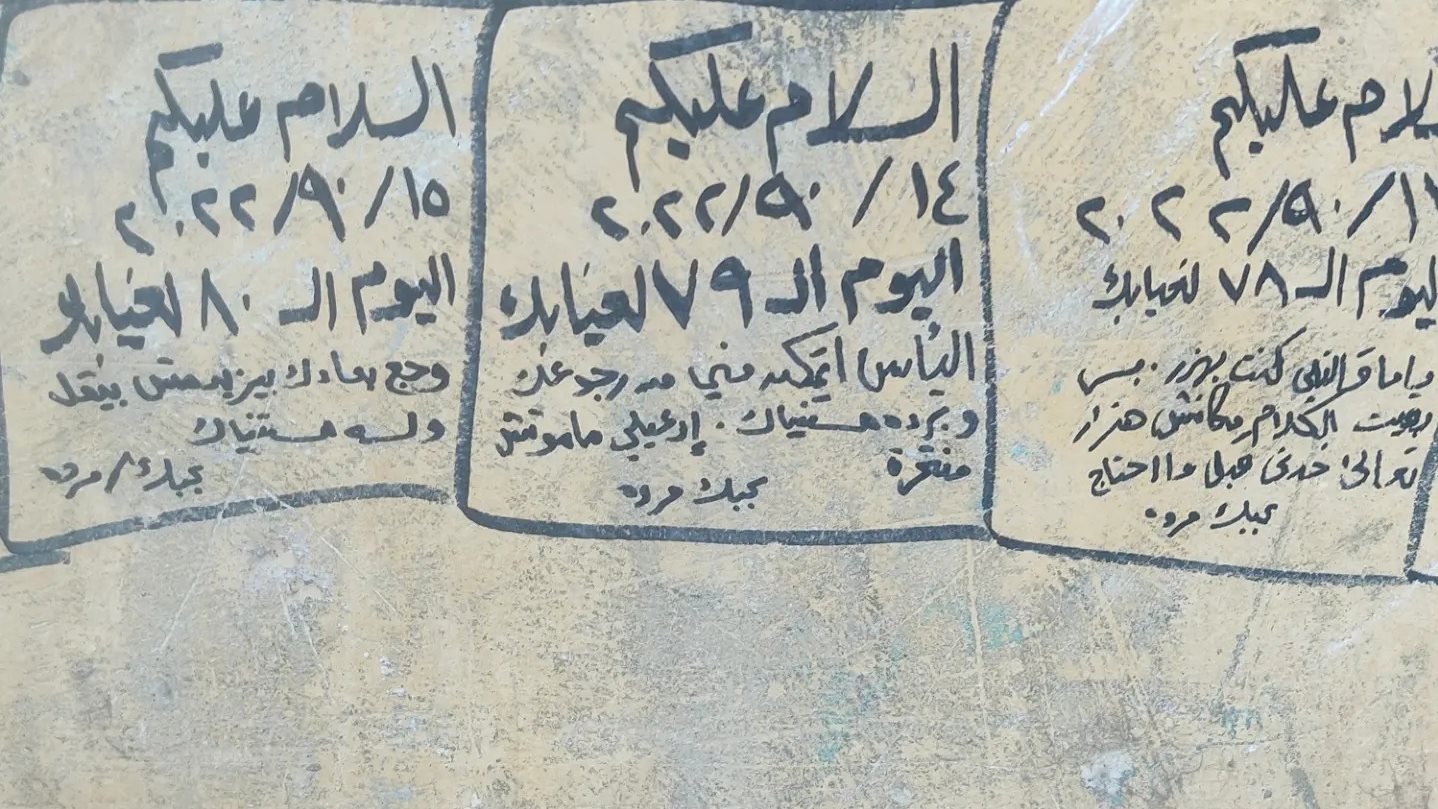 السلام عليكم
١٣/٩٠/٢٠٢٢
اليوم الـ ٧٨ لغيابك
كنت بهزر. بس
الكلام مكانش هزار
تعالى خدني
بحبك مروه
السلام عليكم
١٤/٩٠/٢٠٢٢
اليوم الـ ٧٩ لغيابك
اليأس اتمكن مني من رجوعك
وبرده مستنياك. إدعيلي ماموتش
منتحرة
بحبك مروه
السلام عليكم
١٥/٩٠/٢٠٢٢
اليوم الـ ٨٠ لغيابك
وجع بعادك بيزيد مش بيقل
ولسه مستنياك
بحبك/مروه